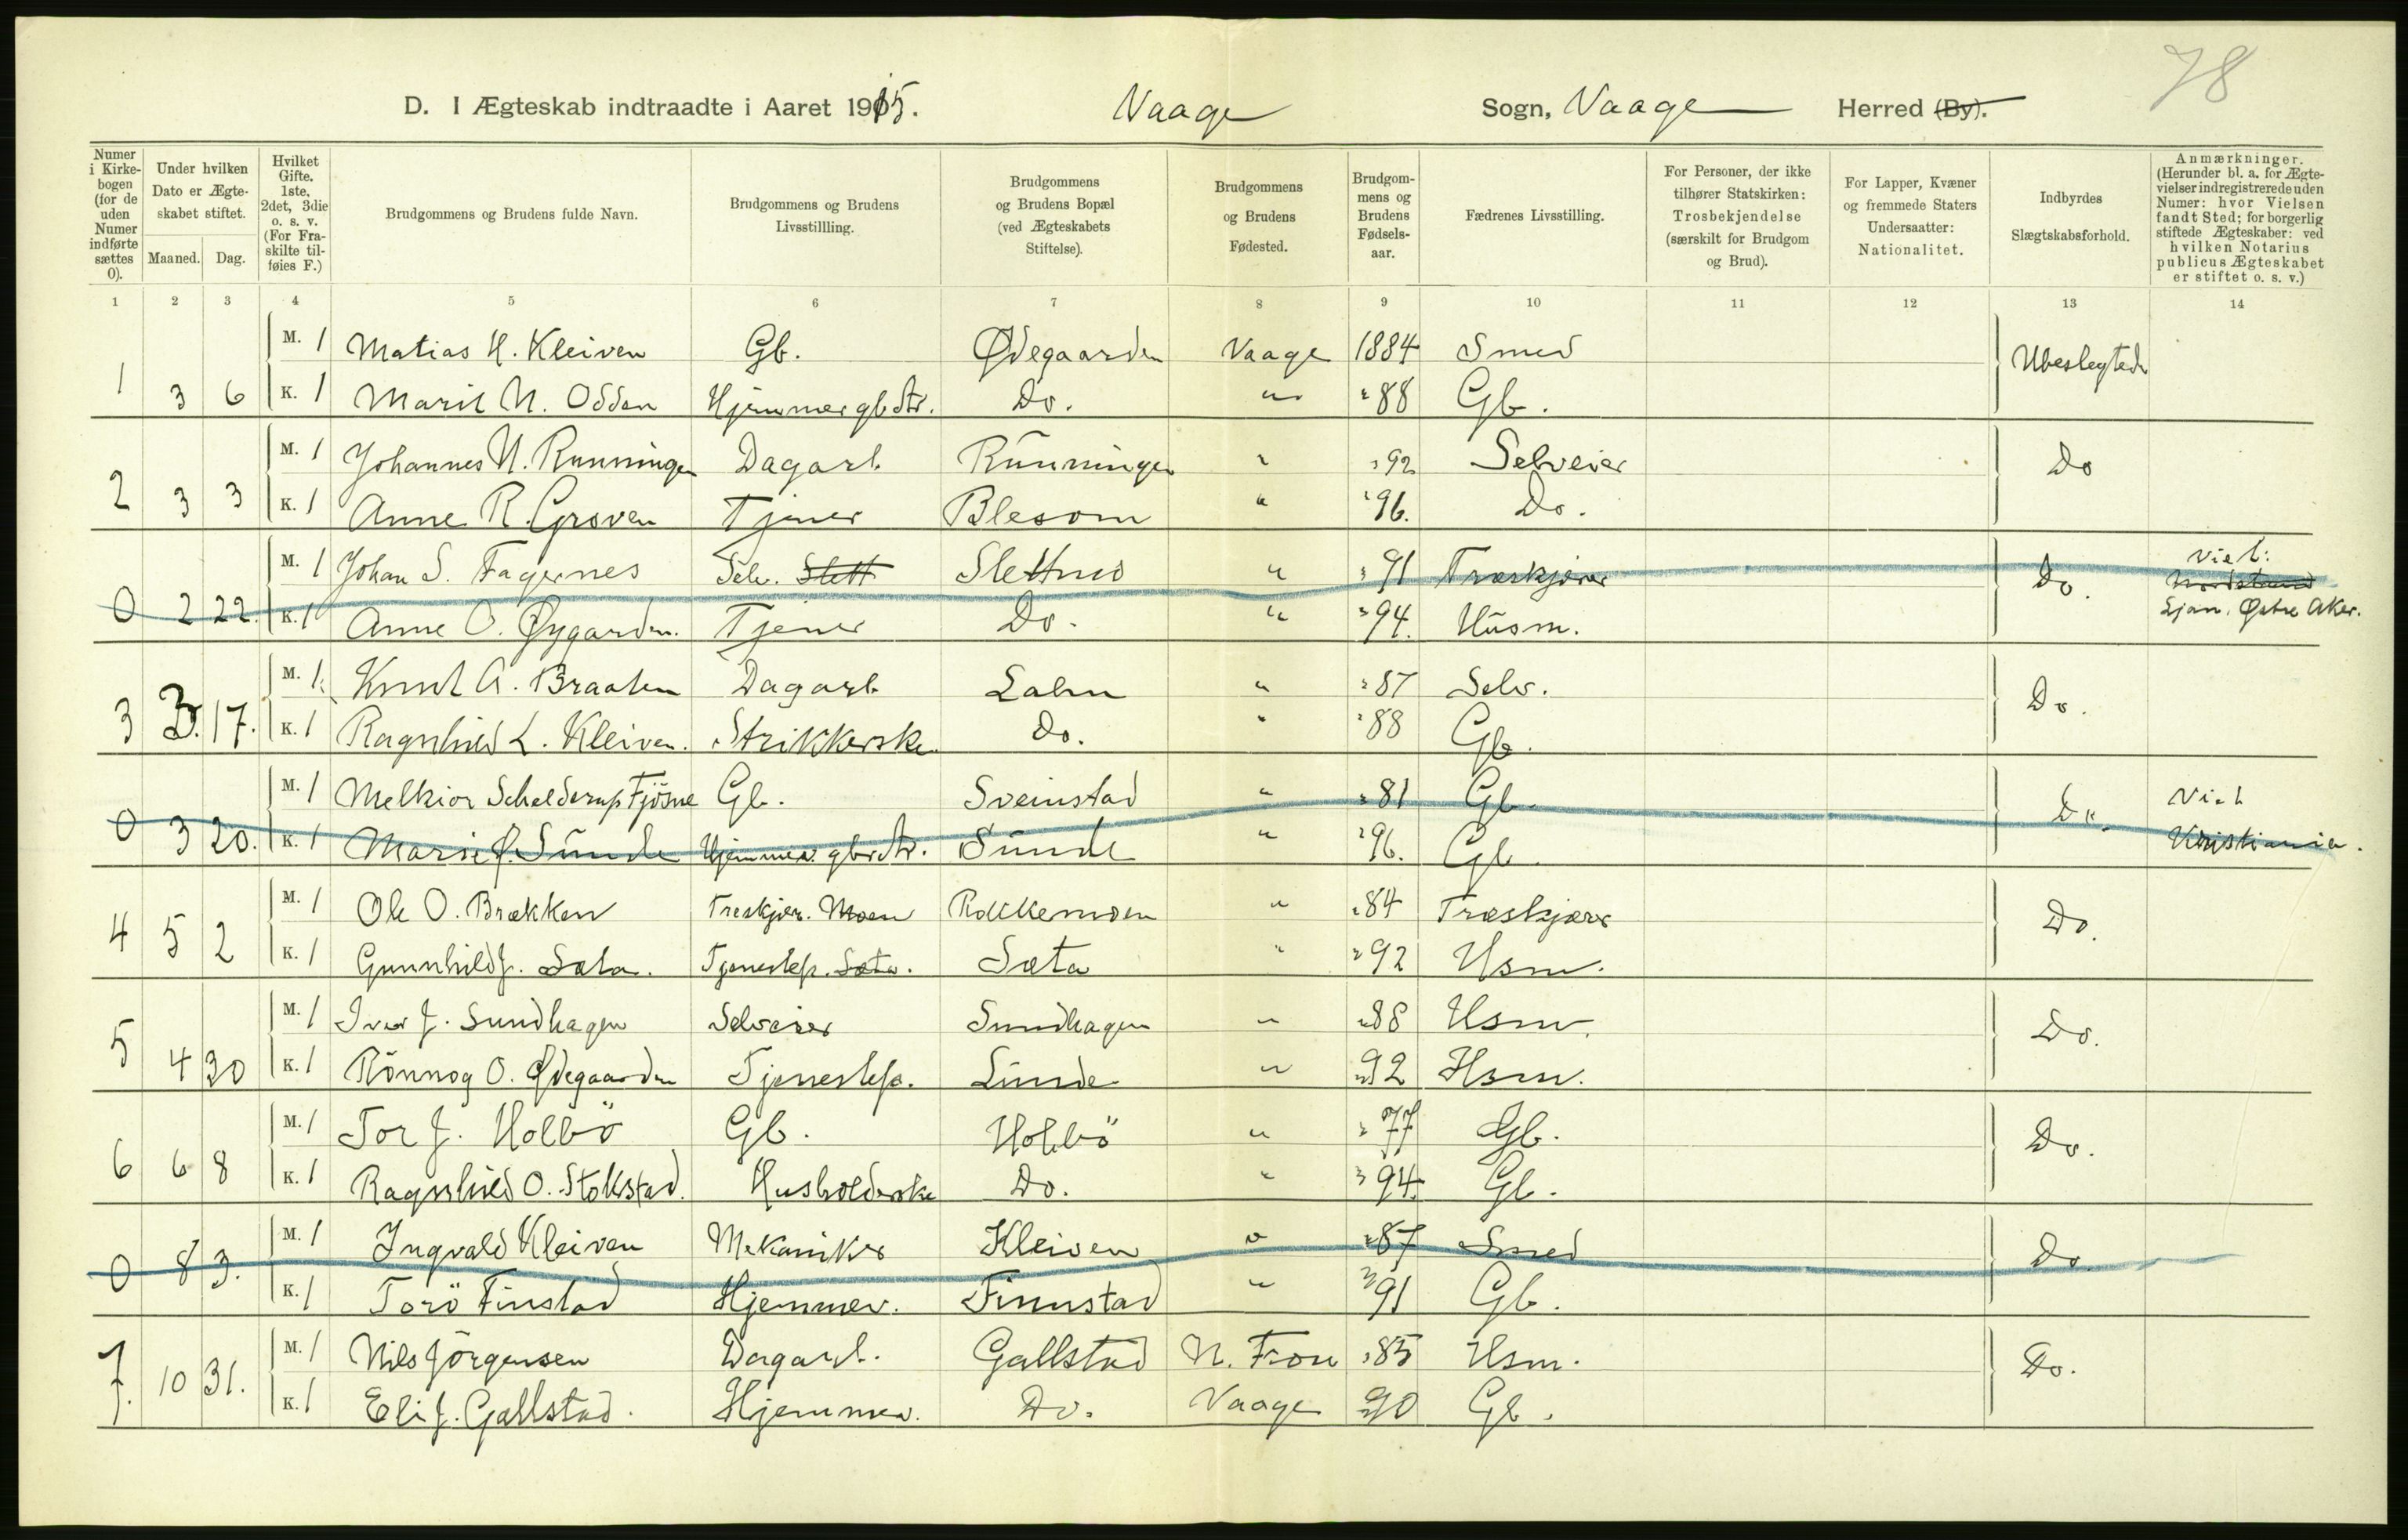 78
D. I Ægteskab indtraadte i Aaret 1915. Vaage Sogn, Vaage Herred (By).
Numer i Kirkebogen (for de uden Numer indførte sættes 0).
Under hvilken Dato er Ægteskabet stiftet.
Maaned. Dag.
Hvilket Gifte. 1ste, 2det, 3die o. s. v. (For Fraskilte tilføies F.)
Brudgommens og Brudens fulde Navn.
Brudgommens og Brudens Livsstillling.
Brudgommens og Brudens Bopæl (ved Ægteskabets Stiftelse).
Brudgommens og Brudens Fødested.
Brudgommens og Brudens Fødselsaar.
Fædrenes Livsstilling.
For Personer, der ikke tilhører Statskirken: Trosbekjendelse (særskilt for Brudgom og Brud).
For Lapper, Kvæner og fremmede Staters Undersaatter: Nationalitet.
Indbyrdes Slægtskabsforhold.
Anmærkninger. (Herunder bl. a. for Ægtevielser indregistrerede uden Numer: hvor Vielsen fandt Sted; for borgerlig stiftede Ægteskaber: ved hvilken Notarius publicus Ægteskabet er stiftet o. s. v.)
1 2 3 4 5 6 7 8 9 10 11 12 13 14
M. 1 Matias H. Kleiven Gb. Ødegaarden Vaage 1884 Smed Ubeslegtede
1 3 6 K. 1 Marit N. Odden Hjemmev gbdtr. Do. " " 88 Gb.
M. 1 Johannes N. Runningen Dagarb. Runningen " " 92 Selveier Do
2 3 3 K. 1 Anne R. Groven Tjener Blesom " " 96. Do.
M. 1 Johan S. Fagernes Selv. Slett Slettmo " " 91 Træskjærer Do. Viet:
0 2 22. K. 1 Anne O. Øygarden. Tjener Do. " " 94. Husm. Ljan. Østre Aker.
M. 1 Knut A. Braaten Dagarb. Lalm " " 87 Selv. Do.
3 3. 17. K. 1 Ragnhild L. Kleiven. Strikkerske Do. " " 88 Gb.
M. 1 Melkior Schelderup Fjösne Gb. Sveinstad " " 81 Gb. Do. Viet
0 3 20. K. 1 Marie J. Sunde Hjemmev. gbrdtr. Sunde " " 96. Gb. Kristiania.
M. 1 Ole O. Brækken Treskjær. Moen Rækkemoen " " 84 Træskjærer Do.
4 5 2 K. 1 Gunnhild J. Sæta. Tjenestep. Sæta. Sæta " " 92 Hsm.
M. 1 Iver J. Sundhagen Selveier Sundhagen " " 88 Hsm. Do.
5 4 30 K. 1 Rönnog O. Ødegaarden Tjenestep. Sunde " " 92 Hsm.
M. 1 Tor J. Holbö Gb. Holbö " " 77 Gb. Do.
6 6 8 K. 1 Ragnhild O. Stokstad. Husholderske Do. " " 94. Gb.
M. 1 Ingvald Kleiven Mekaniker Kleiven " " 87 Smed Do.
0 8 3. K. 1 Torö Finstad Hjemmev. Finnstad " " 91 Gb.
M. 1 Nils Jörgensen Dagarb. Gallstad N. Fron " 85 Hsm. Do.
7. 10 31. K. 1 Eli J. Gallstad. Hjemmev. Do. Vaage " 90 Gb.